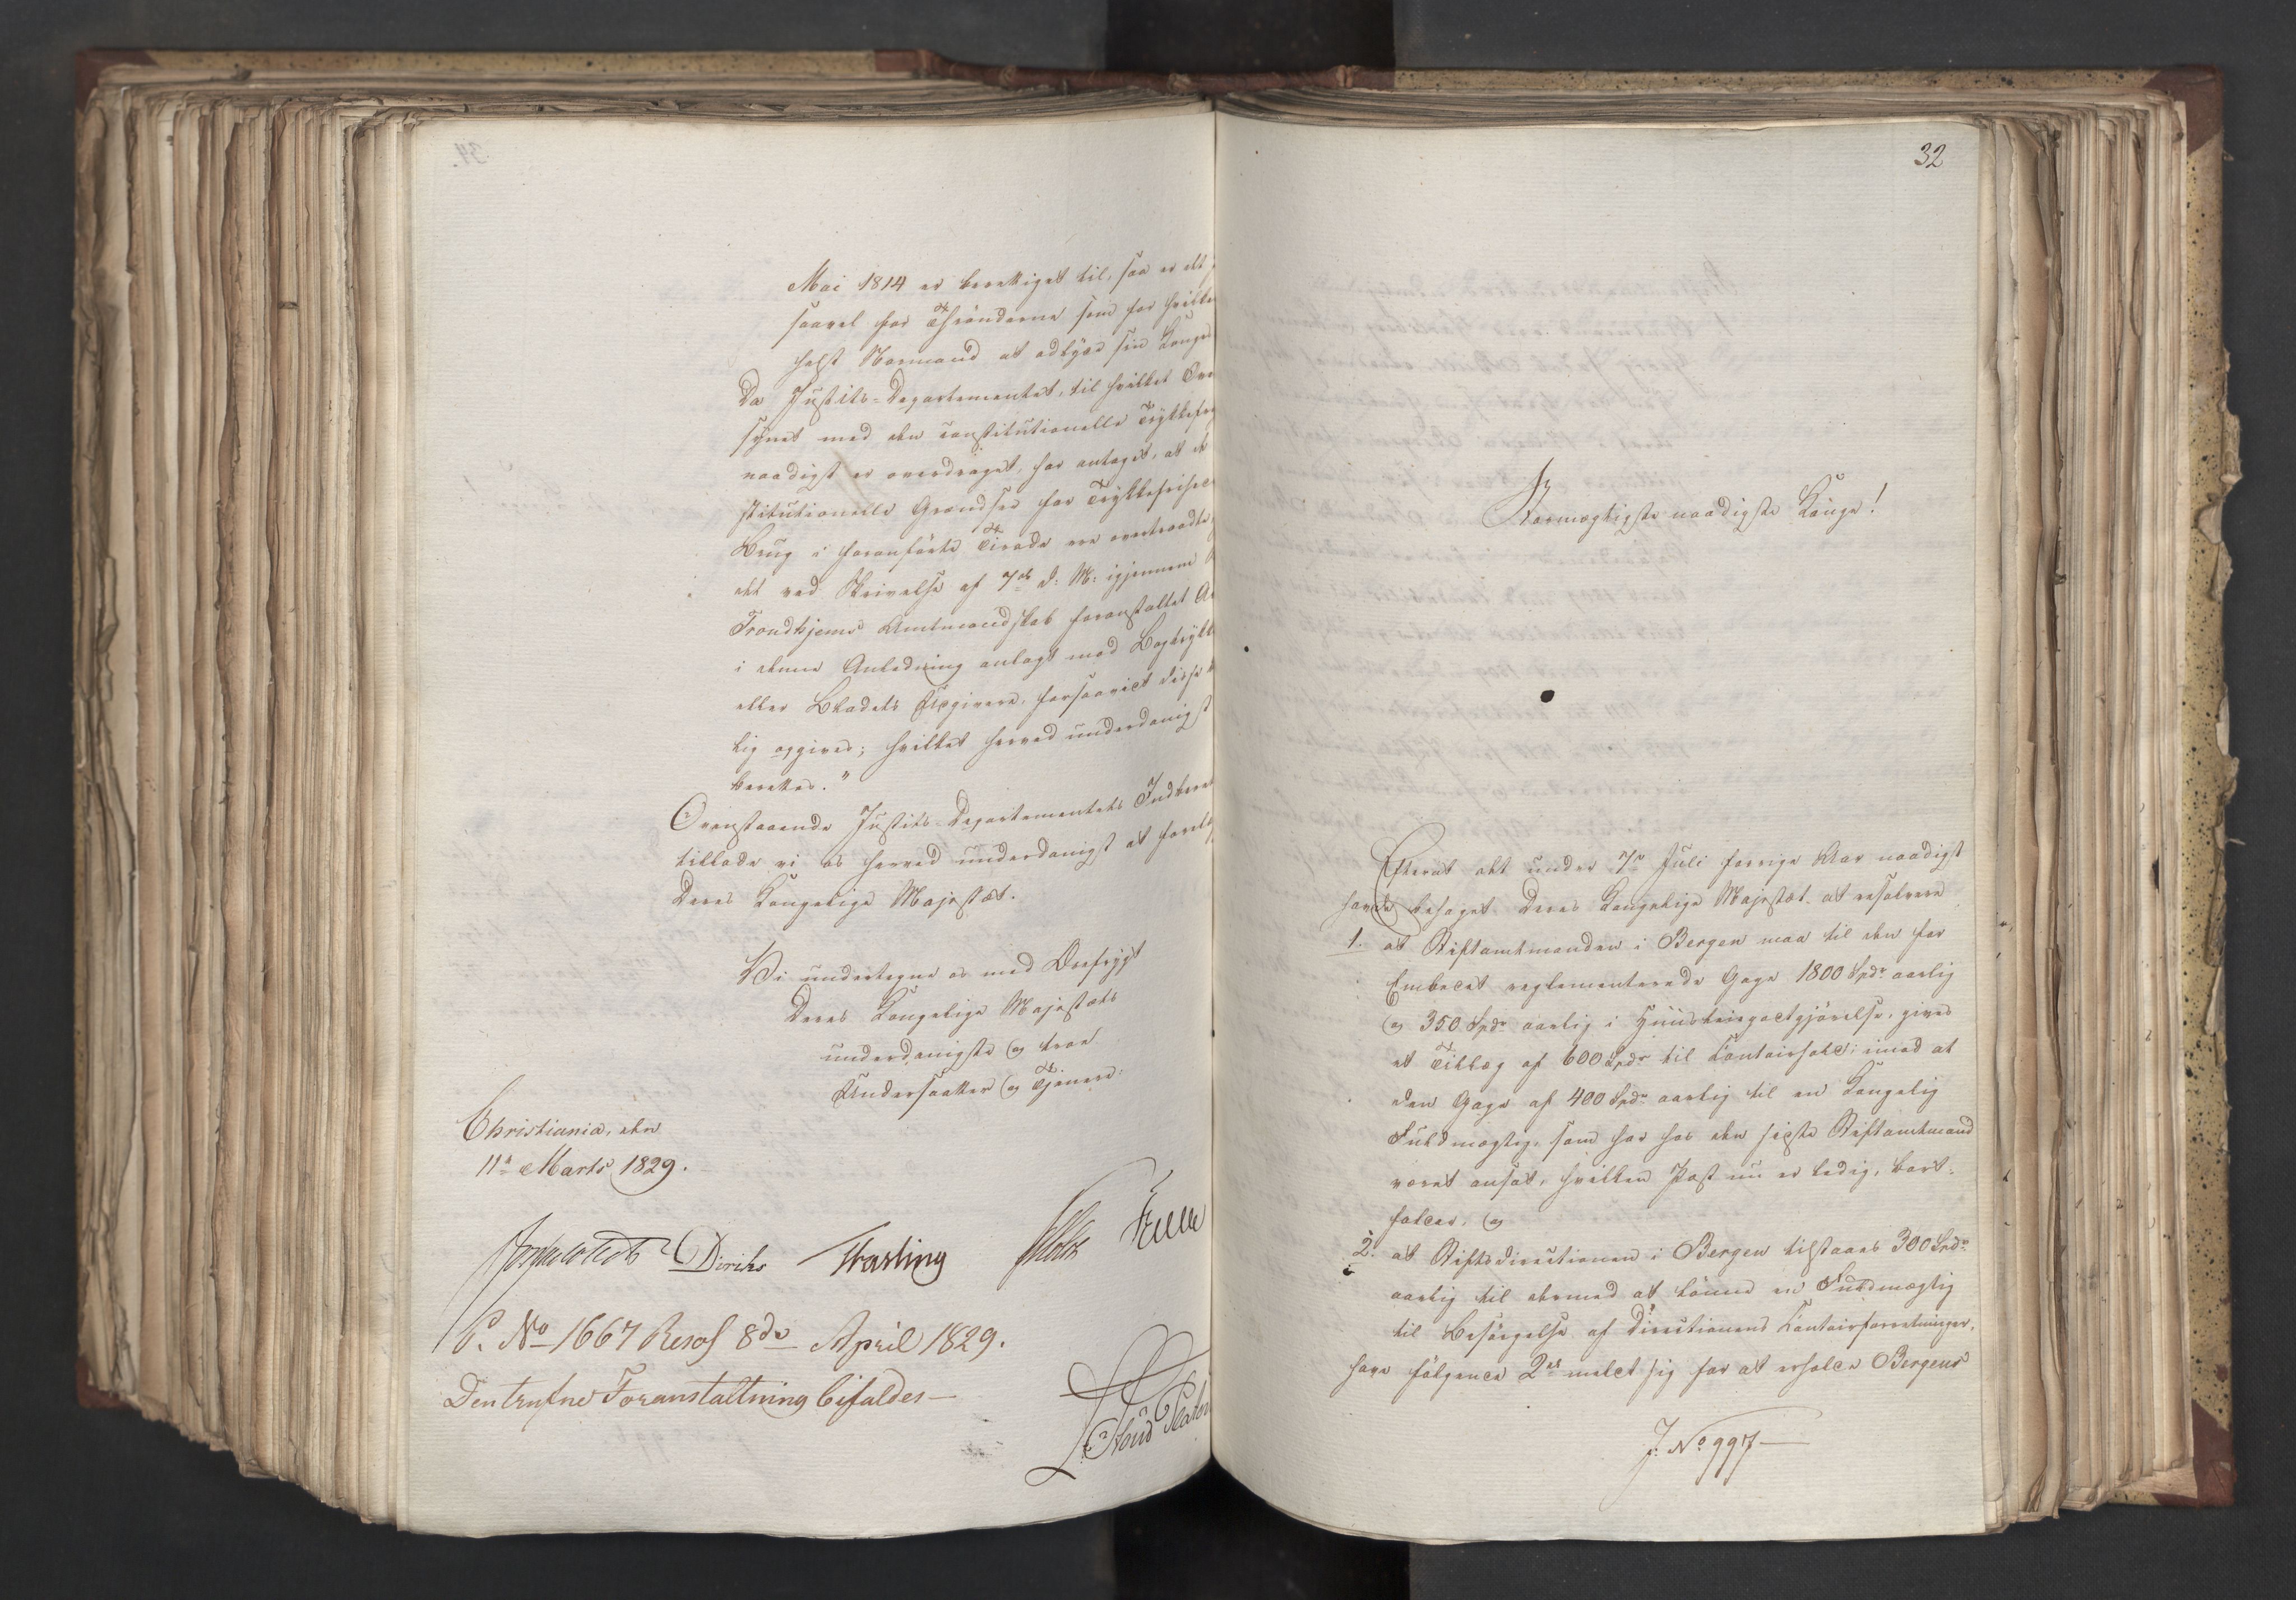 Mai 1814 er berettiget til, saa er det
saavel for Thrönderne som for hvilke
helst Normand at adlyde sin Konges
Da Justits-Departementet, til hvilket Over
synet med den constitutionelle Trykkefri
naadigst er overdraget, har antaget, at de
stitutionelle Grændser for Trykkefrihed
Brug i foranförte Tirade ere overtraadte,
det ved Skrivelse af 7de d: M: igjennem
Trondhjems Amtmandskab foranstaltet
i denne Anledning anlagt mod Bogtrykk
eller Bladets Udgivere, forsaavidt disse
lig opgives; hvilket herved underdanigst
berettes."
Ovenstaaende Justits-Departementets Indberet
tillade vi os herved underdanigst at forelæg
Deres Kongelige Majestæt.
Vi undertegne os med Ærefrygt
Deres Kongelige Majestæts
underdanigste og troe
Undersaatter og Tjenere.
Christiania, den
11te Marts 1829.
Diriks Krasting Holst
P. No 1667 Resol 8de April 1829.
Den trufne Foranstaltning bifaldes—
32
Stormægtigste naadigste Konge!
Efterat det under 7de Juli forrige Aar naadigst
havde behaget Deres Kongelige Majestæt at resolvere
1. at Stiftamtmanden i Bergen maa til den for
Embedet reglementerede Gage 1800 Spdr aarlig
og 350 Spdr aarlig i Huusleiegodtgjörelse, gives
et Tillæg af 600 Spdr til Contoirhold; imod at
den Gage af 400 Spdr aarlig til en Kongelig
Fuldmægtig, som har hos den sidste Stiftamtmand
været ansat, hvilken Post nu er ledig, bort-
falder, og
2. at Stiftsdirectionen i Bergen tilstaaes 300 Spdr
aarlig til dermed at lönne en Fuldmægtig
til Besörgelse af Directionens Contoirforretninger,
have fölgende 2de meldt sig for at erholde Bergens
J. No 997—